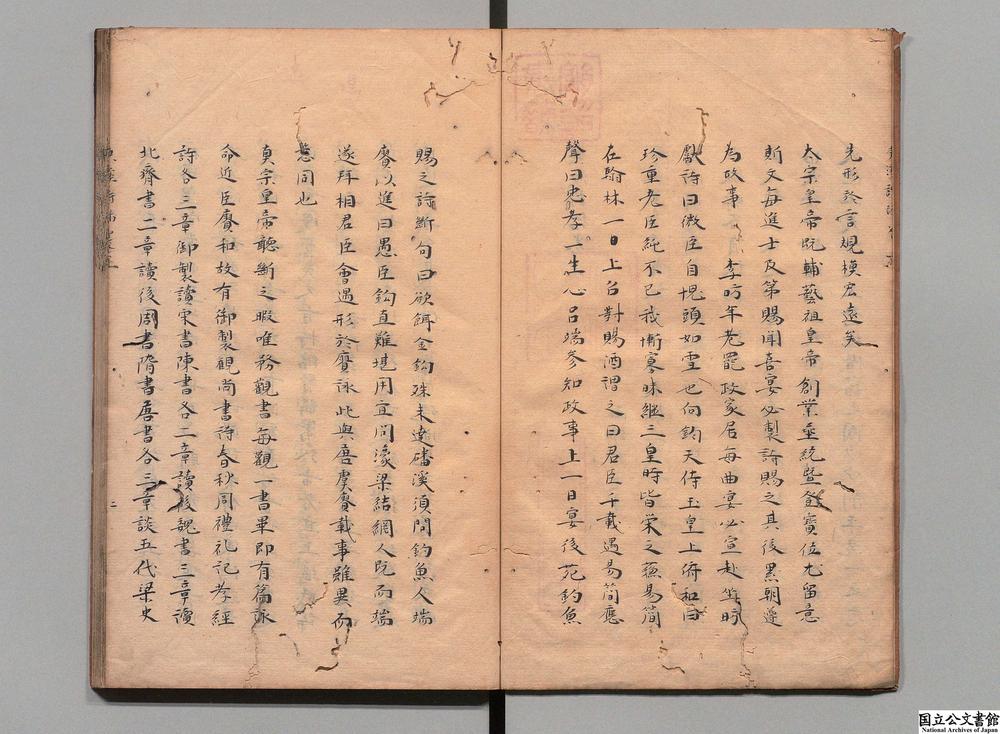 先形於言規模宏遠矣
太宗皇帝既輔藝祖皇帝創業垂統暨登寶位尤留意
斯文每進士及第賜聞喜宴必製詩賜之其後累朝遵
為故事 李昉年老罷政家居每曲宴必宣赴坐昉
獻詩曰微臣自愧頭如雪也向鈞天侍玉皇上俯和曰
珍重老臣純不已我慚寡昧繼三皇時皆榮之蘇易簡
在翰林一日上召對賜酒謂之曰君臣千載遇易簡應
聲曰忠孝一生心呂端參知政事上一日宴後苑釣魚
賜之詩斷句曰欲餌金鈎殊未達磻溪須問釣魚人端
賡以進曰愚臣鈎直難堪用宜問濠梁結網人既而端
遂拜相君臣會遇形於賡詠此與唐虞賡載事雖異而
意同也
真宗皇帝聽斷之暇唯務觀書每觀一書畢即有篇詠
命近臣賡和故有御製觀尚書詩春秋周禮礼記孝經
詩各三章御製讀宋書陳書各二章讀後魏書三章讀
北齊書二章讀後周書隋書唐書各三章談五代梁史
二
国立公文書館
National Archives of Japan